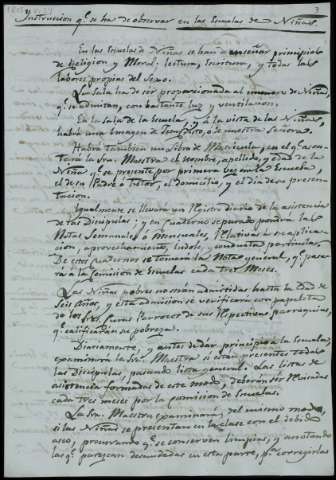 Instruccion q.e se ha de observar en las Escuelas de Niñas.
3
En las Escuelas de Niñas se han de enseñar principios
de Religion y Moral; lectura, Escritura, y todas las
labores propias del Sexo.
La Sala ha de ser proporcionada al numero de Niñas,
q.e se admitan, con bastante luz y ventilacion.
En la Sala de la Escuela, y á la vista de las Niñas,
habrá una Imagen de Jesucristo, ó de nuestra Señora.
Habrá tambien un Libro de Matricula, en el q.e asen-
tará la Sra. Maestra el nombre, apellido, y edad de la
Niña q.e se presente por primera vez en la Escuela,
el de su Padre ó Tutor, el domicilio, y el dia de su presen-
tacion.
Igualmente se llevará un Registro diario de la asistencia
de las Discipulas; y en Cuaderno separado pondrá las
Notas Semanales ó Mensuales, relativas á su aplica-
cion, aprovechamiento, indole, y conducta particular.
De estos cuadernos se tomará la Nota general, q.e pasa-
rá á la Comision de Escuelas cada tres Meses.
Las Niñas pobres no serán admitidas hasta la Edad de
Seis Años, y esta admision se verificará con papeleta
de los Sres. Curas Parrocos de sus respectivas parroquias,
q.e calificarán su pobreza.
Diariamente, y antes de dar principio á la Escuela,
examinará la Sra. Maestra si estan presentes todas
las Discipulas, pasando lista general. Las listas de
asistencia formadas de este modo, deberán ser
cada tres meses por la Comision de Escuelas.
La Sra. Maestra examinará del mismo modo,
si las Niñas se presentan en la clase con el debido
aseo, procurando q.e se conserven limpias, y anotando
las q.e parezcan descuidadas en esta parte, p.a corregirlas